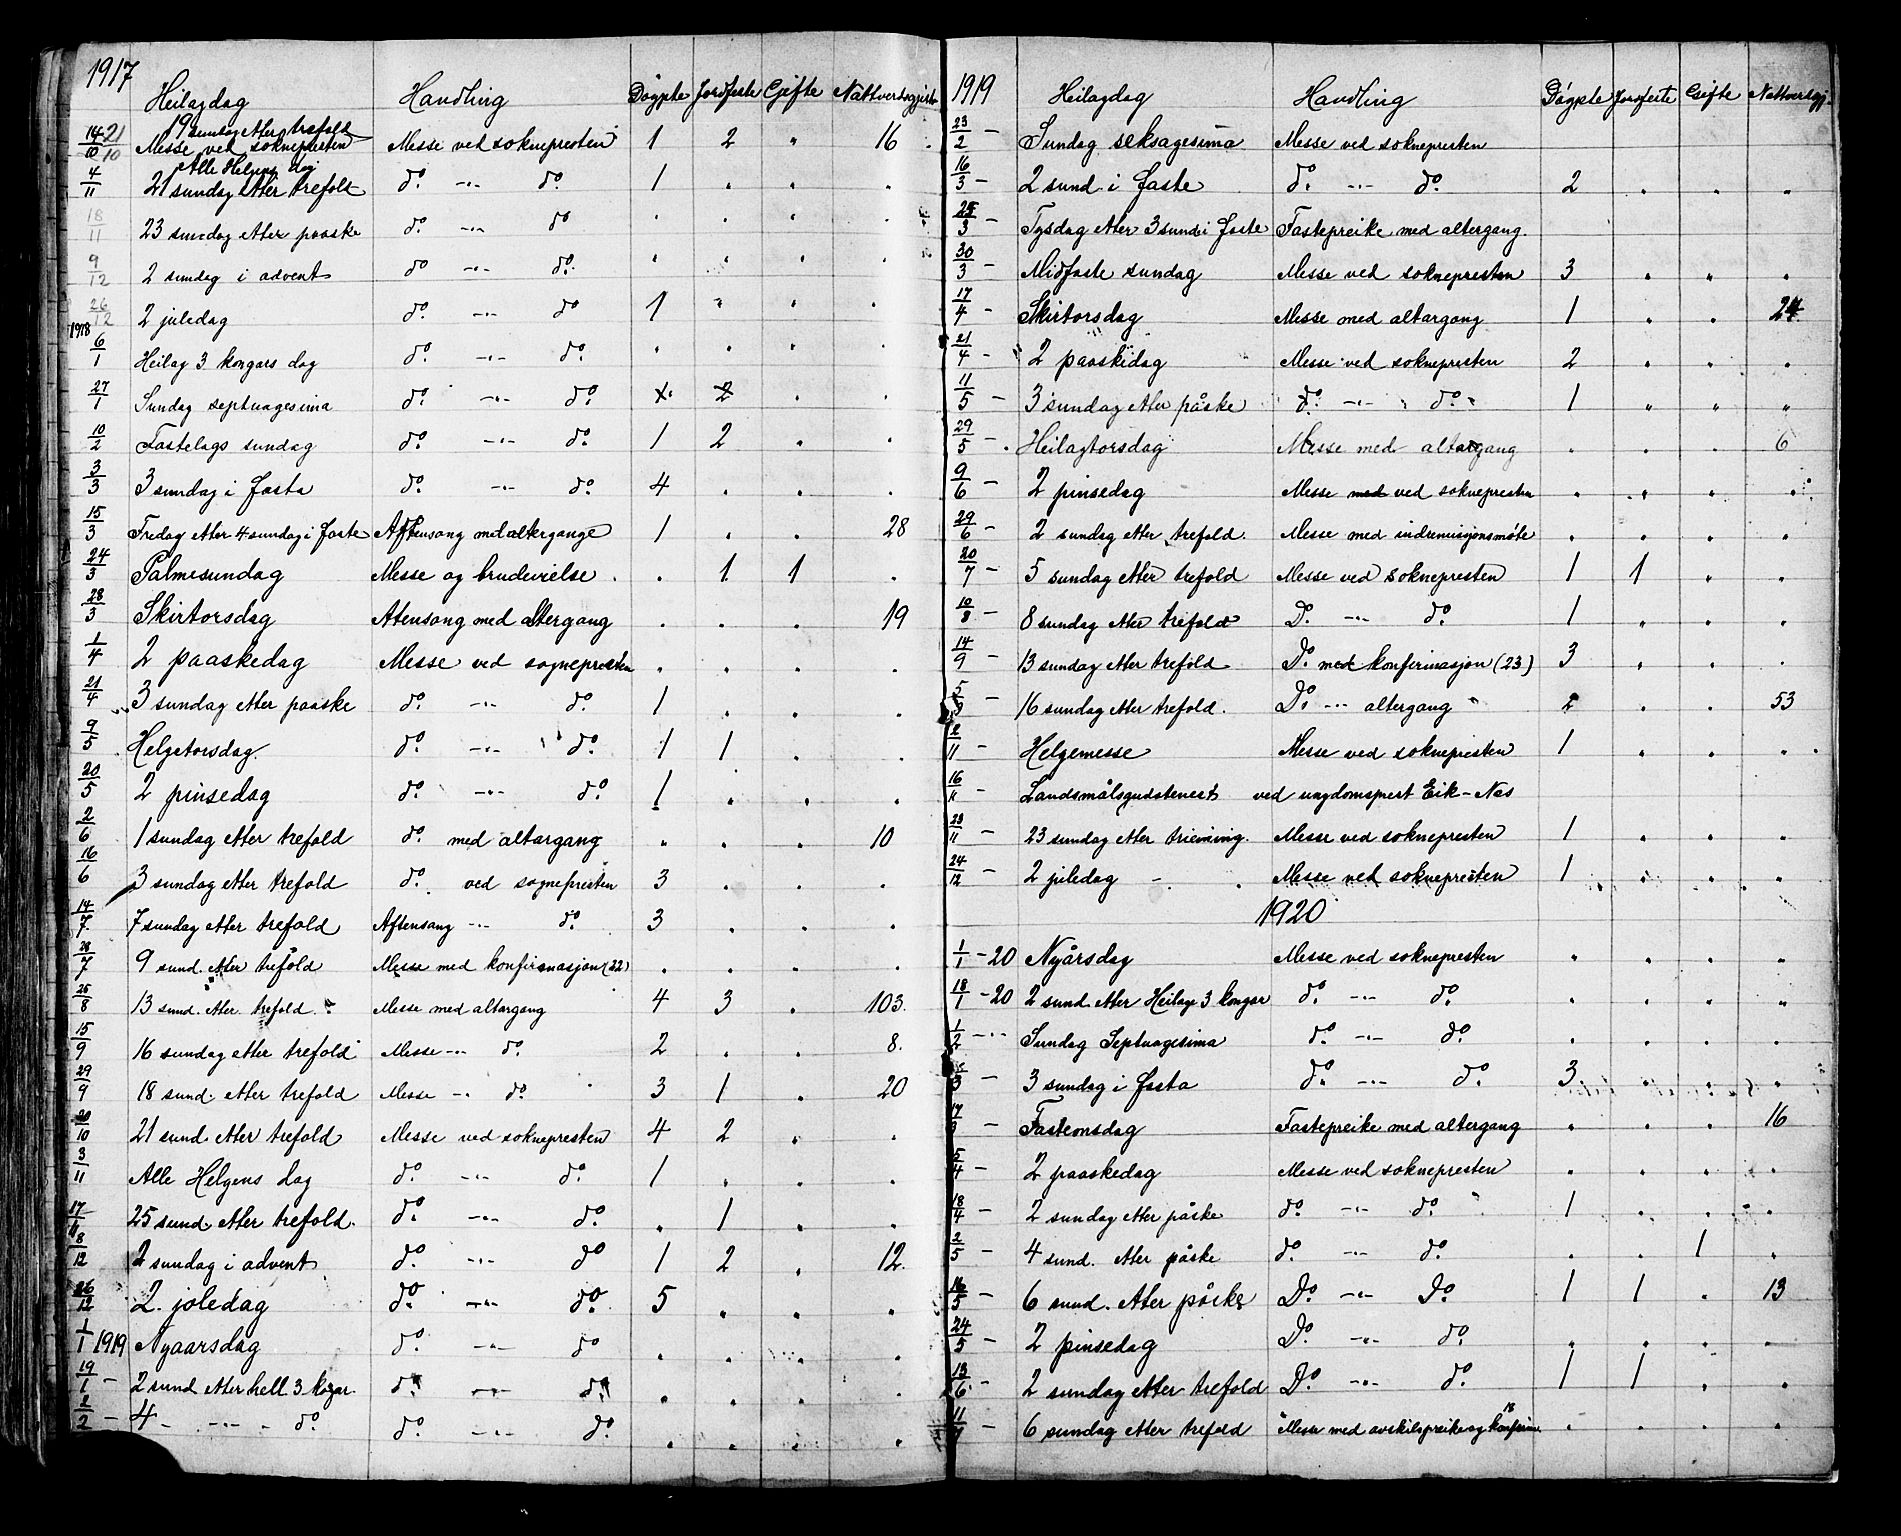 1917 Heilagdag Handling Døypte Jordfeste Gifte Nattverdsgjester
14/10 21/10 19 sundag etter trefold Messe ved soknepresten Messe ved soknepresten 1 2 " 16
4/11 Alle Helgens dag 21 sundag etter trefold do. -"- do. 1 " " "
18/11 23 sundag etter paaske do. -"- do " " " "
9/12 2 sundag i advent do -"- do. " " " "
26/12 2 juledag do. -"- do 1 " " "
1918 6/1 Heilag 3 kongars dag do. -"- do. " " " "
27/1 Sundag septuagesima do. -"- do. 2 " "
10/2 Fastelags sundag do. -"- do. 1 2 " "
3/3 3 sundag i fasta do. -"- do. 4 " " "
15/3 Fredag etter 4 sundag i faste Aftensong med altergange 1 " " 28
24/3 Palmesundag Messe og brudevielse. " 1 1 "
28/3 Skirtorsdag Atensong med altergang " " " 19
1/4 2 paaskedag Messe ved sognepresten " " " "
21/4 3 sundag etter paaske do. -"- do. 1 " " "
9/5 Helgetorsdag. do. -"- do. 1 1 " "
20/5 2 pinsedag do. -"- do. 1 " " "
2/6 1 sundag etter trefold do. med altargang " " " 10
16/6 3 sundag etter trefold do. ved sognepresten 3 " " "
14/7 7 sundag etter trefold Aftensang -"- do. 3 " " "
28/7 9 sund. etter trefold Messe med konfirmasjon (22) " " " "
25/8 13 sund. etter trefold. Messe med altargang 4 3 " 103.
15/9 16 sundag etter trefold Messe -"- do. 2 " " 8.
29/9 18 sund. etter trefold Messe -"- do 3 1 " 20
20/10 21 sund. etter trefold Messe ved soknepresten 4 2 " "
3/11 Alle Helgens dag do. -"- do. 1 " " "
17/11 25 sund. etter trefold. do. -"- do. " 1 " "
8/12 2 sundag i advent do. -"- do 1 2 " 12.
26/12 2. joledag do. -"- do. 5 " " "
1/1 1919 Nyaarsdag do. -"- do " " " "
19/1 - 2 sund etter hell 3 kogar. do. -"- do. " " " "
2/2 - 4 - -"- - do. do. -"- do. " " " "
1919 Heilagdag Handling Døypte Jordfeste Gifte Nattverdgj.
23/2 - Sundag seksagesima Messe ved soknepresten
16/3 - 2 sund. i faste do. -"- do. 2 " " "
25/3 - Tysdag etter 3 sund i faste Fastepreike med altergang.
30/3 - Midfaste sundag Messe ved soknepresten 3 " " "
17/4 - Skirtorsdag Messe med altargang 1 " " 24
21/4 - 2 paaskedag Messe ved soknepresten 2 " " "
11/5 - 3 sundag etter påske do. -"- do. 1 " " "
29/5 - Heilagtorsdag Messe med altargang " " " 6
9/6 - 2 pinsedag Messe med ved soknepresten " " " "
29/6 - 2 sundag etter trefold. Messe med indremisjonsmøte " " " "
20/7 - 5 sundag etter trefold Messe ved soknepresten 1 1 " "
10/8 - 8 sundag etter trefold Do. -"- do. 1 " " "
14/9 - 13 sundag etter trefold Do. med konfirmasjon (23) 3 " " "
16 sundag etter trefold. Do. -"- altergang " " 53
2/11 - Helgemesse Messe ved soknepresten 1 " " "
16/11 - Landsmålsgudstenest ved ungdomsprest Eik-Nes
23/11 - 23 sundag etter trieining. Messe ved soknepresten 1 " " "
24/12 - 2 juledag - Messe ved soknepresten 1 " " "
1920
1/1 - 20 Nyårsdag Messe ved soknepresten " " " "
18/1 - 20 2 sund. etter Heilage 3 kongar do. -"- do. " " " "
1/2 -"- Sundag Septuagesima do. -"- do. " " " "
3 sundag i fasta do. -"- do. 3. " " "
17/3 - Fasteonsdag Fastepreike med altergang " " " 16
5/4 - 2 paaskedag Messe ved soknepresten " " " "
18/4 - 2 sundag etter påske do. -"- do. 1 " " "
2/5 - 4 sund. etter påske do. -"- do. " " 1 "
16/5 - 6 sund. etter påske Do. -"- Do. 1 1 " 13
24/5 - 2 pinsedag Do. -"- do. " " " "
13/6 - 2 sundag etter trefold Do. -"- do. 1 1 " "
11/7 - 6 sundag etter trefold Messe med avskilspreike og 18 konfirm. " " " "